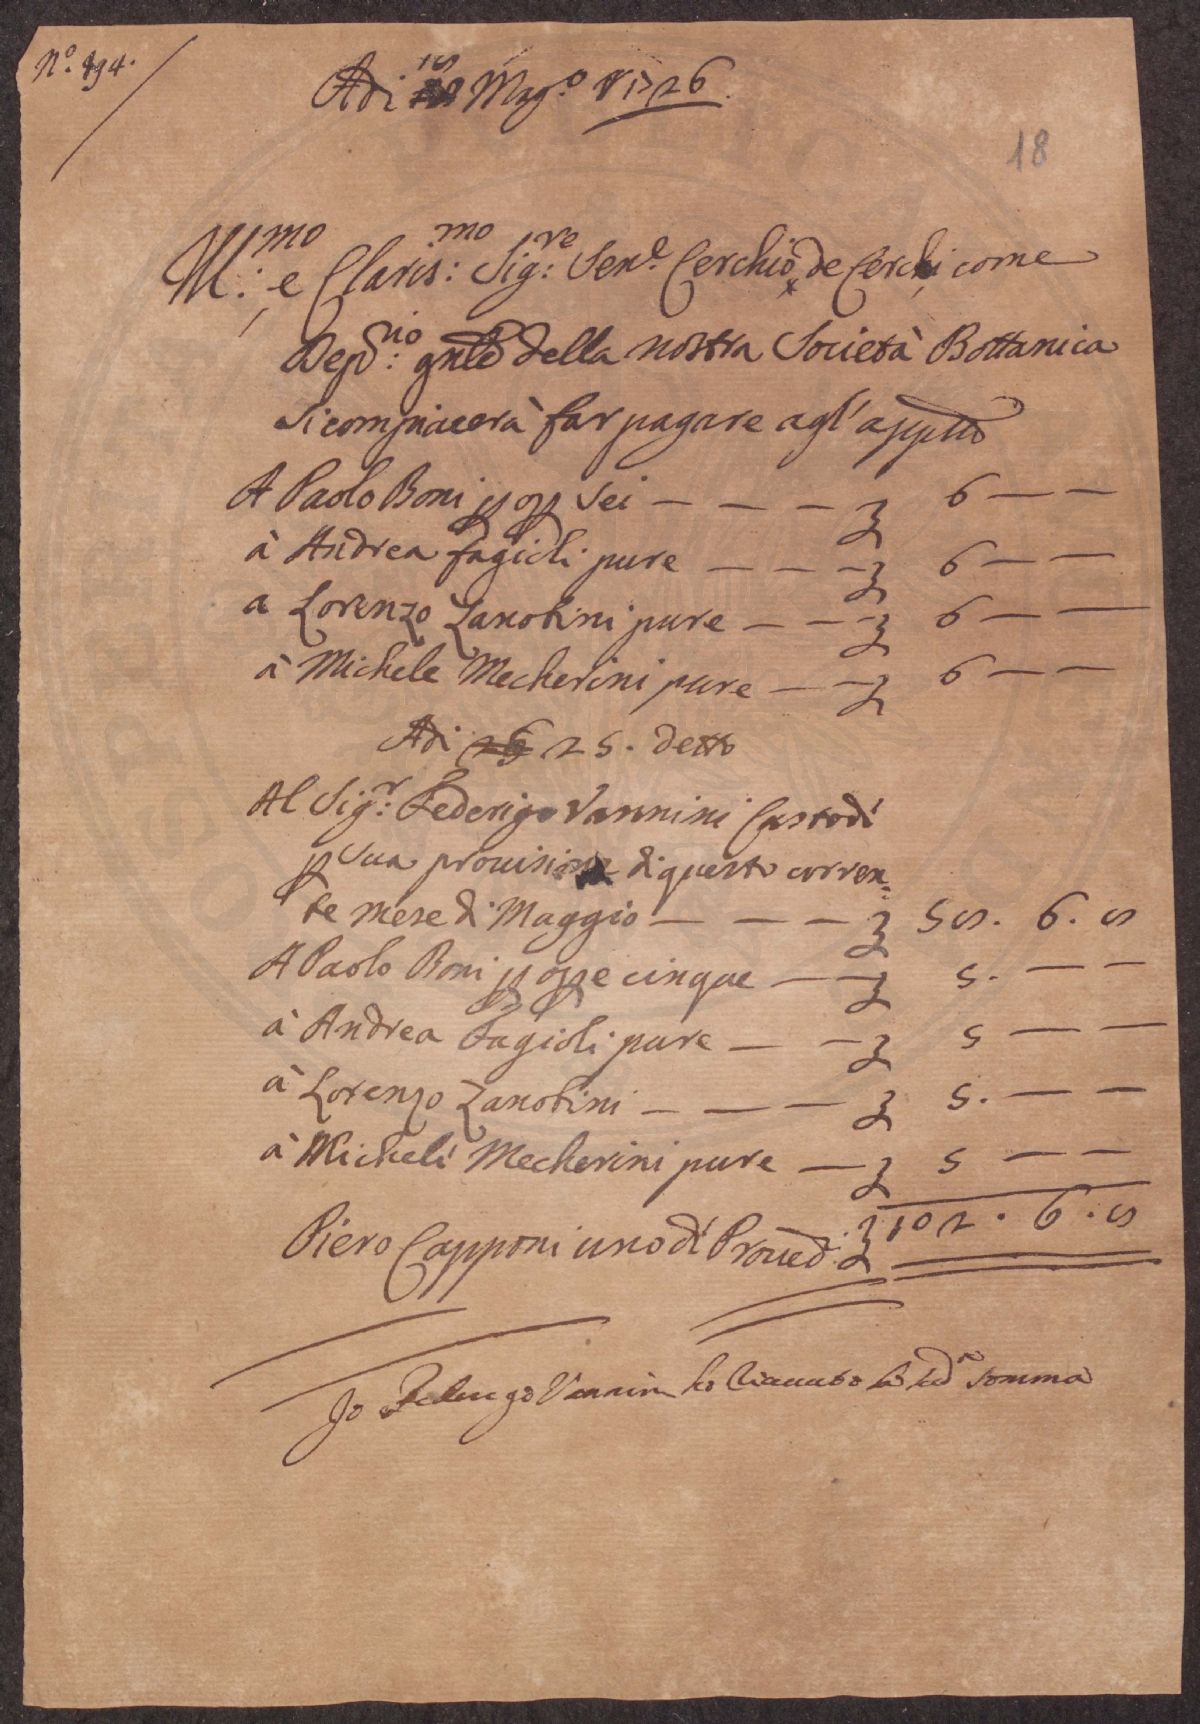 N.º 194.
Adi 18 Mag.º 1726.
18
Ill:mo e Claris:mo Sig:re Sen.e Cerchio de Cerchi come
Dep:rio gnle della nostra Società Bottanica
si compiacerà far pagare agl'appto
A Paolo Boni p op sei — — — 6 — —
à Andrea fagioli pure — — — 6 — —
a Lorenzo Zanobini pure — — — 6 — —
à Michele Mecherini pure — — 6 — —
Adi 25. detto
Al Sig:r Federigo Vannini Custodi
p sua provisione di questo corren=
te mese di Maggio — — — 58. 6. 8
A Paolo Boni p ope cinque — — 5. — —
à Andrea Fagioli pure — — 5 — —
à Lorenzo Zanobini — — — 5. — —
à Micheli Mecherini pure — 5 — —
Piero Capponi uno di Proved: 102. 6. 8
Io Federigo Vannini ho riceuuto la sud.a somma